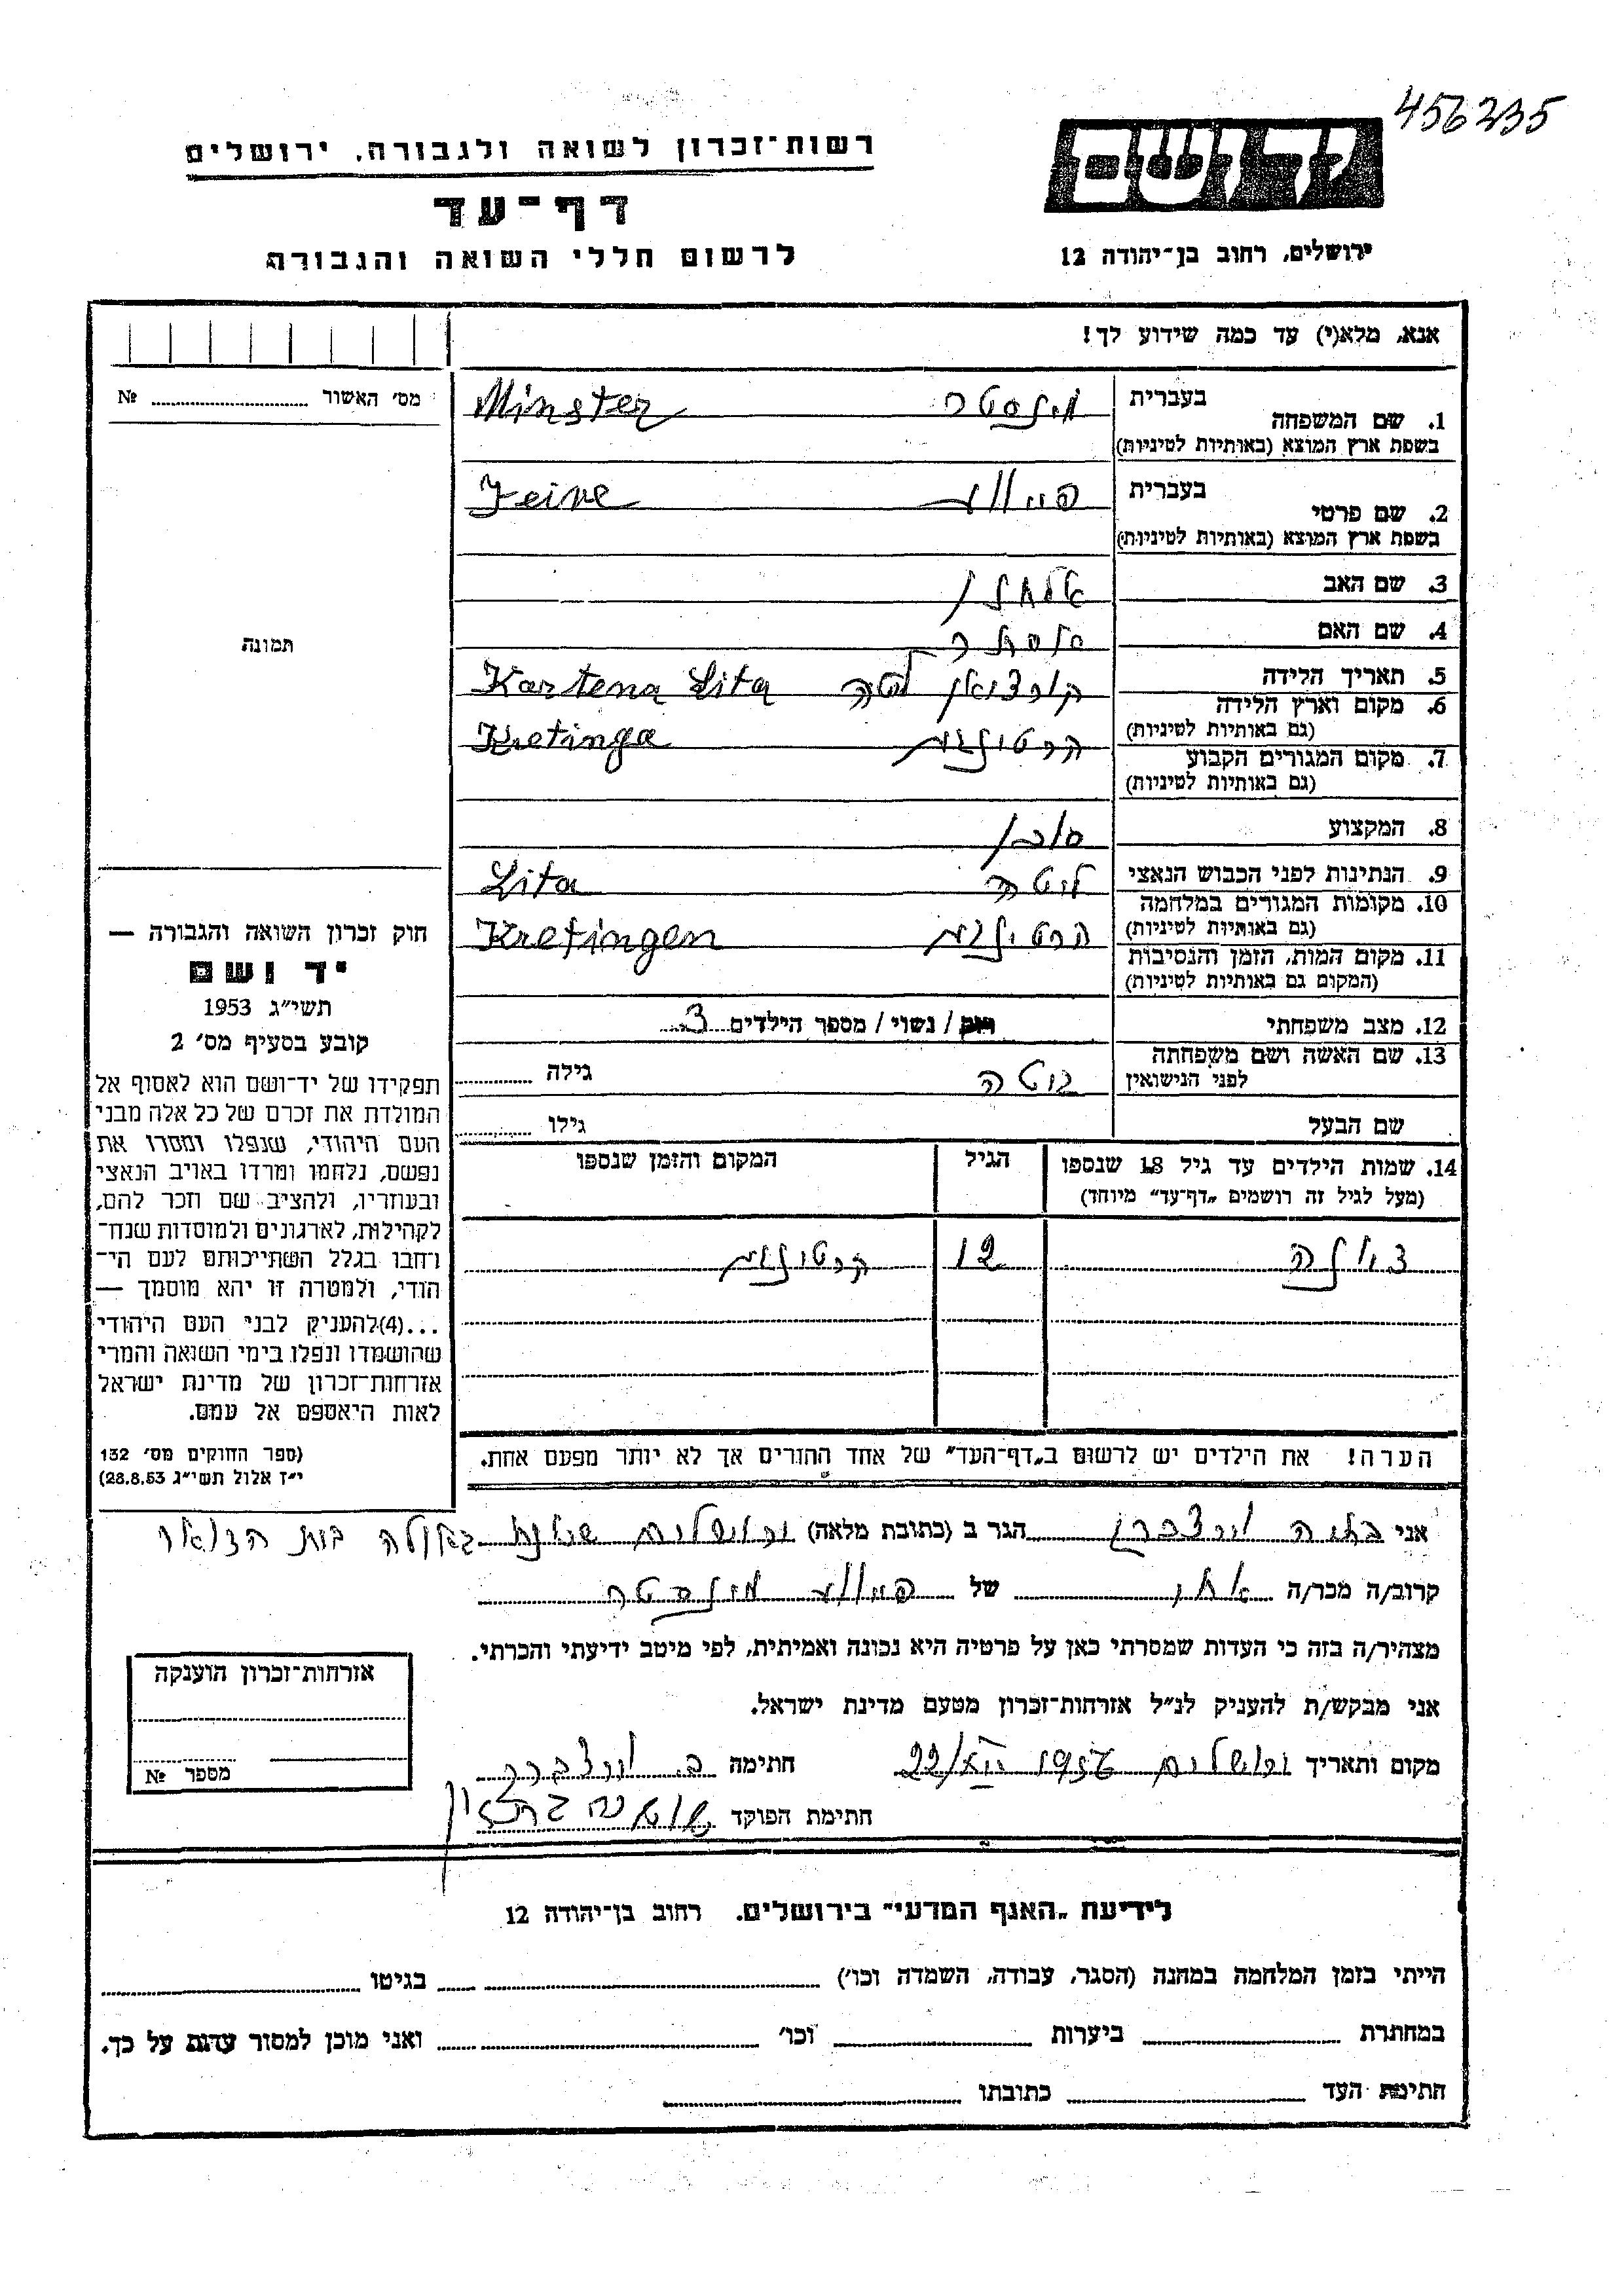 456235
יד ושם
ירושלים, רחוב בן־יהודה 12
רשות־זכרון לשואה ולגבורה, ירושלים
דף־עד
לרשום חללי השואה והגבורה
אנא, מלא(י) עד כמה שידוע לך!
מס׳ האשור № ....................
תמונה
חוק זכרון השואה והגבורה —
יד ושם
תשי״ג 1953
קובע בסעיף מס׳ 2
תפקידו של יד־ושם הוא לאסוף אל
המולדת את זכרם של כל אלה מבני
העם היהודי, שנפלו ומסרו את
נפשם, נלחמו ומרדו באויב הנאצי
ובעוזריו, ולהציב שם וזכר להם,
לקהילות, לארגונים ולמוסדות שנח־
רבו בגלל השתייכותם לעם הי־
הודי, ולמטרה זו יהא מוסמך —
...(4)להעניק לבני העם היהודי
שהושמדו ונפלו בימי השואה והמרי
אזרחות־זכרון של מדינת ישראל
לאות היאספם אל עמם.
(ספר החוקים מס׳ 132
י״ז אלול תשי״ג 28.8.53)
1. שם המשפחה בעברית מינסטר Minster
בשפת ארץ המוצא (באותיות לטיניות)
2. שם פרטי בעברית פייווע Feive
בשפת ארץ המוצא (באותיות לטיניות)
3. שם האב אלחנן
4. שם האם אסתר
5. תאריך הלידה
6. מקום וארץ הלידה ליטה Kartena Lita
(גם באותיות לטיניות)
7. מקום המגורים הקבוע קרטינגה Kretinga
(גם באותיות לטיניות)
8. המקצוע סוחר
9. הנתינות לפני הכבוש הנאצי ליטה Lita
10. מקומות המגורים במלחמה קרטינגה Kretingen
(גם באותיות לטיניות)
11. מקום המות, הזמן והנסיבות
(המקום גם באותיות לטיניות)
12. מצב משפחתי רווק / נשוי / מספר הילדים 3
13. שם האשה ושם משפחתה גיטה גילה
לפני הנישואין
שם הבעל גילו
14. שמות הילדים עד גיל 18 שנספו הגיל המקום והזמן שנספו
(מעל לגיל זה רושמים „דף־עד״ מיוחד)
12 קרטינגה
הערה! את הילדים יש לרשום ב„דף־העד״ של אחד ההורים אך לא יותר מפעם אחת.
אני בתיה הגר ב (כתובת מלאה) ירושלים שכונת גאולה בית הדואר
קרוב/ה מכר/ה אחי של פייווע מינסטר
מצהיר/ה בזה כי העדות שמסרתי כאן על פרטיה היא נכונה ואמיתית, לפי מיטב ידיעתי והכרתי.
אני מבקש/ת להעניק לנ״ל אזרחות־זכרון מטעם מדינת ישראל.
מקום ותאריך ירושלים חתימה ב.
חתימת הפוקד
אזרחות־זכרון הוענקה
מספר №
לידיעת „האגף המדעי״ בירושלים. רחוב בן־יהודה 12
הייתי בזמן המלחמה במחנה (הסגר, עבודה, השמדה וכו׳) בגיטו
במחתרת ביערות וכו׳ ואני מוכן למסור עדות על כך.
חתימת העד כתובתו